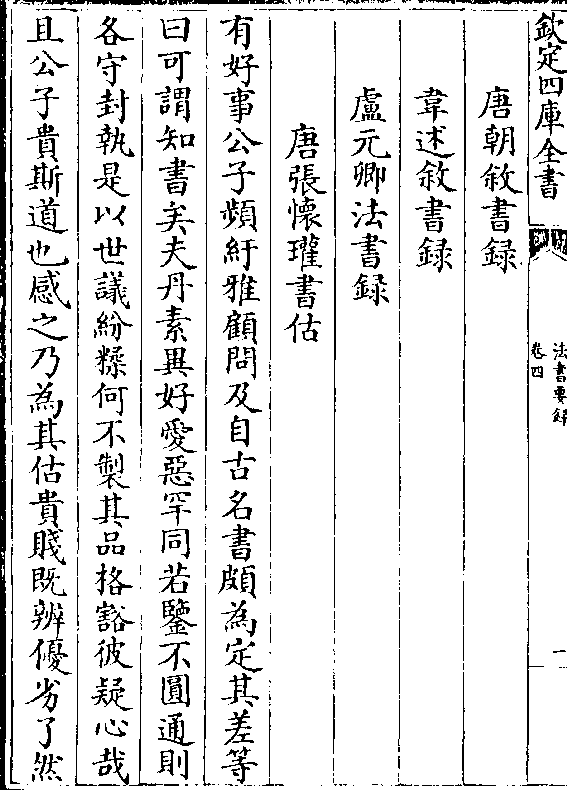 欽定四庫全書
法書要録
卷四
一
唐朝敘書録
韋述敘書録
盧元卿法書録
唐張懷瓘書估
有好事公子頻紆雅顧問及自古名書頗為定其差等
曰可謂知書矣夫丹素異好愛惡罕同若鑒不圓通則
各守封執是以世議紛糅何不製其品格豁彼疑心哉
且公子貴斯道也感之乃為其估貴賤既辨優劣了然